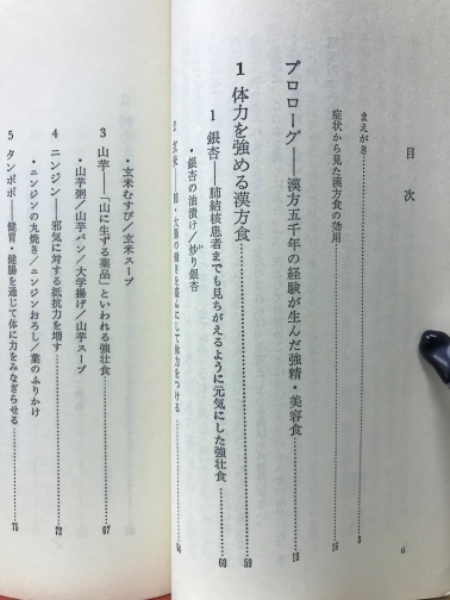 目次
まえがき……3
症状から見た漢方食の効用……16
プロローグ——漢方五千年の経験が生んだ強精・美容食……19
1 体力を強める漢方食……59
1 銀杏——肺結核患者までも見ちがえるように元気にした強壮食……60
・銀杏の油漬け/炒り銀杏
2 玄米——胃・大腸の働きを盛んにして体力をつける……64
・玄米むすび/玄米スープ
3 山芋——「山に生ずる薬品」といわれる強壮食……67
・山芋粥/山芋パン/大学揚げ/山芋スープ
4 ニンジン——邪気に対する抵抗力を増す……72
・ニンジンの丸焼き/ニンジンおろし/葉のふりかけ
5 タンポポ——健胃・健腸を通じて体に力をみなぎらせる……75
6